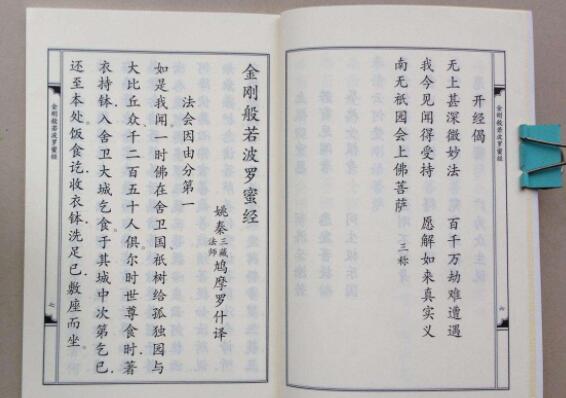 开经偈
无上甚深微妙法 百千万劫难遭遇
我今见闻得受持 愿解如来真实义
南无祇园会上佛菩萨 三称
金刚般若波罗蜜经
六
金刚般若波罗蜜经
姚秦三藏法师鸠摩罗什译
法会因由分第一
如是我闻一时佛在舍卫国祇树给孤独园与
大比丘众千二百五十人俱尔时世尊食时著
衣持钵入舍卫大城乞食于其城中次第乞已
还至本处饭食讫收衣钵洗足已敷座而坐
金刚般若波罗蜜经
七